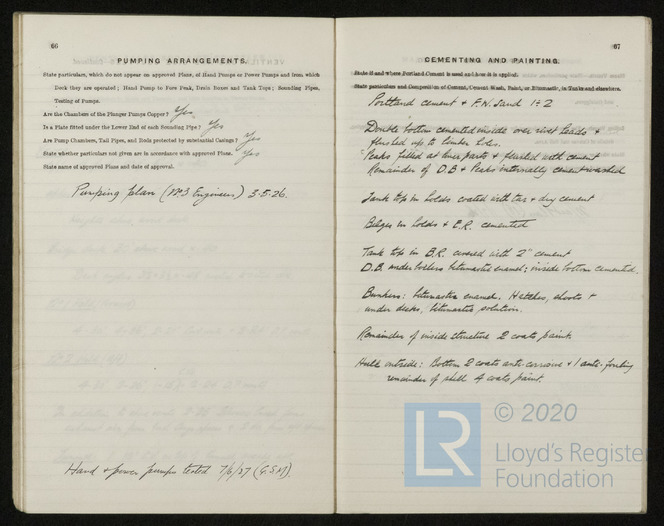 66
PUMPING ARRANGEMENTS.
State particulars, which do not appear on approved Plans, of Hand Pumps or Power Pumps and from which
Deck they are operated; Hand Pump to Fore Peak, Drain Boxes and Tank Tops; Sounding Pipes,
Testing of Pumps.
Are the Chambers of the Plunger Pumps Copper? Yes
Is a Plate fitted under the Lower End of each Sounding Pipe? Yes
Are Pump Chambers, Tail Pipes, and Rods protected by substantial Casings? Yes
State whether particulars not given are in accordance with approved Plans. Yes
State name of approved Plans and date of approval.
Pumping plan (Engineers) 3.5.26.
Hand & power pumps tested 7/6/27 (G.S.M).
67
CEMENTING AND PAINTING.
State if and where Portland Cement is used and how it is applied.
State particulars and Composition of Cement, Cement Wash, Paint, or Bitumastic, in Tanks and elsewhere.
Portland cement & F.W. Sand 1:2
Double bottom cemented inside over rivet heads &
flushed up to limber holes.
Peaks filled at lower parts & flushed with cement
Remainder of D.B & Peaks internally cement washed
Tank top in holds coated with tar & dry cement
Bilges in holds & E.R. cemented
Tank top in B.R. covered with 2" cement
D.B. under boilers bitumastic enamel; inside bottom cemented.
Bunkers: bitumastic enamel. Hatches, shoots &
under decks, bitumastic solution.
Remainder of inside structure 2 coats paint.
Hull outside: Bottom 2 coats anti-corrosive & 1 anti-fouling
remainder of shell 4 coats paint.
LR © 2020
Lloyd's Register
Foundation